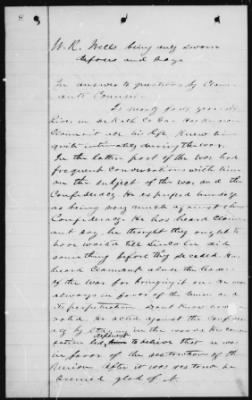 W. R. Wells being duly sworn
deposes and says
In answer to questions by Claim-
ants Counsel
Is nearly forty years old
lives in DeKalb Co Ga. has known
Claimant all his life. Knew him
quite intimately during the war.
In the latter part of the war had
frequent conversations with him
on the subject of the war and the
Confederacy. He expressed himself
as being very much against the
Confederacy. Has heard Claim-
ant say he thought they ought to
have waited till Lincoln did
something before they seceded. Has
heard Claimant abuse the leaders
of the war for bringing it on. He was
always in favor of the Union and
its perpetuation. Don't know how
voted. He acted against the Confed-
acy by staying in the woods. His conver-
sation led to believe that he was
in favor of the restoration of the
Union. After it was restored he
seemed glad of it.